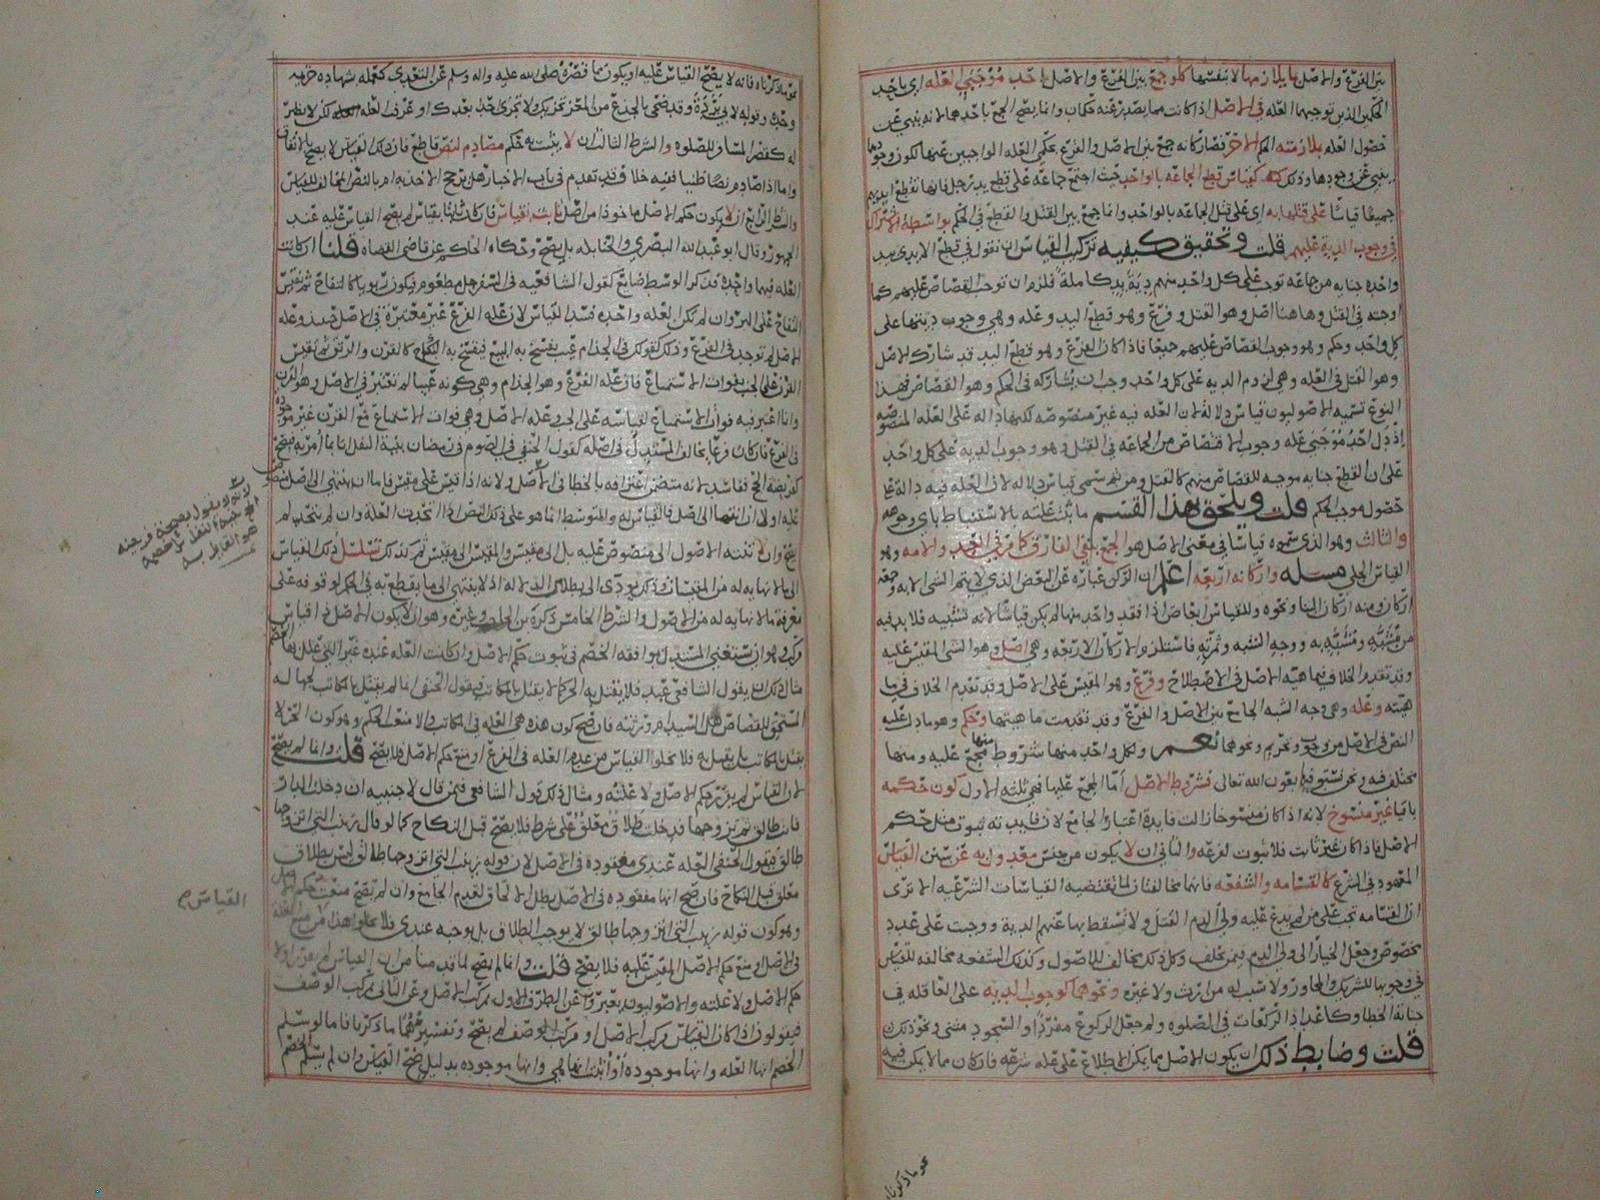 بين الفرع والاصل بما يلازمها لا بنفسها كلو جمع بين الفرع والاصل باحد موجبي العله اي باحد
الحكمين الذين توجبهما العله في الاصل اذا كانت مما يصدر عنه حكمان وانما يصح الجمع باحدهما لانه ينبي عن
حصول العله بملازمته الحكم الاخر فصار كانه جمع بين الاصل والفرع بحكمي العله الواجبين عنها لكون وجودها
ينبي عن وجودها وذلك كقياس قطع الجماعه بالواحد حيث اجتمع جماعه على قطع يد رجل فانها تقطع ايديهم
جميعا قياسًا على قتلها به اي على قتل الجماعه بالواحد وانما جمع بين القتل والقطع في الحكم بواسطة الاشتراك
في وجوب الدية عليهم قلت وتحقيق كيفيه تركيب القياس ان نقول في قطع الايدي بيد
واحده جنايه من جماعه توجب على كل واحد منهم دية يد كاملة فلزم ان توجب القصاص عليهم كما
اوجبته في القتل وهاهنا اصل وهو القتل وفرع وهو قطع اليد وعله وهي وجوب ديتها على
كل واحد وحكم وهو وجوب القصاص عليهم جميعا فاذا كان الفرع وهو قطع اليد قد شارك الاصل
وهو القتل في العله وهي لزوم الديه على كل واحد وجب ان يشاركه في الحكم وهو القصاص فهذا
النوع تسميه الاصوليون قياس دلالة لان العله فيه غير منصوصه لكنها داله على العله المنصوصه
اذ دل احد موجبي عله وجوب الاقتصاص من الجماعه في القتل وهو وجوب الديه على كل واحد
على ان القطع جنايه موجبه للقصاص منهم كالقتل ومن ثم سمي قياس دلاله لان العله فيه داله على
حصول موجب الحكم قلت ويلحق بهذا القسم ما ثبتت علته بالاستنباط باي وجوهه
والثالث وهو الذي سموه قياسا في معنى الاصل هو الجمع بنفي الفارق كما مر في العبد والامه وهو
القياس الجلي مسئله واركانه اربعه اعلم ان الركن عباره عن البعض الذي لا يتم الشي الا به وجمعه
اركان ومنه اركان البنا ونحوه وللقياس ابعاض اذا فقد واحد منها لم يكن قياسًا لانه تشبيه فلا بد فيه
من مشبه ومشبه به ووجه الشبه وثمرته فاستلزم الاركان الاربعه وهي اصل وهو الشي المقيس عليه
وقد تقدم الخلاف فيما هيته الاصل في الاصطلاح وفرع وهو المقيس على الاصل وقد تقدم الخلاف في ما
هيته وعله وهي وجه الشبه الجامع بين الاصل والفرع وقد تقدمت ماهيتها وحكم وهو ما دل عليه
النص في الاصل من وجوب وتحريم ونحوهما نعم ولكل واحد منها شروط منها مجمع عليه ومنها
مختلف فيه ونحن نستوفيها بعون الله تعالى فشروط الاصل أما المجمع عليها فهي ثلثه الاول كون حكمه
باقيا غير منسوخ لانه اذا كان منسوخا زالت فايدة اعتبار الجامع لان فايدته ثبوت مثل حكم
الاصل فاذا كان غير ثابت فلا ثبوت لفرعه والثاني ان لا يكون من جنس معدول به عن سنن القياس
المعهود في الشرع كالقسامه والشفعه فانهما مخالفتان لما تقتضيه القياسات الشرعيه الا ترى
ان القسامه تجب على من لم يدع عليه ولي الدم القتل ولا تسقط بها عنهم الدية ووجبت على عدد
مخصوص وجعل الخيار الى ولي الدم فيمن يحلف وكل ذلك مخالف للاصول وكذلك الشفعه مخالفه للقياس
في وجوبها للشريك والجاور ولا سبب له من ارث ولا غيره ونحوهما كوجوب الديه على العاقله في
جناية الخطا وكاعداد الركعات في الصلوه ولم جعل الركوع مفردًا والسجود مثنى ونحو ذلك
قلت وضابط ذلك ان يكون الاصل مما يمكن الاطلاع على عله شرعه فان كان مما لا يمكن فيه
نحو ما ذكرناه
نحو ما ذكرناه فانه لا يصح القياس عليه او يكون مما قصره صلى الله عليه واله وسلم عن التعدي كجعله شهاده خزيمه
وحده وقوله لابي بردة وقد ضحى بالجذع من المعز تجزيك ولا تجزى احدا بعدك او عرف العله لكن لا نظير
له كقصر المسافر للصلوه والشرط الثالث ان لا يثبت به حكم مصادم لنص قاطع فان ذلك القياس لا يصح بالاتفاق
واما اذا صادم نصًا ظنيا ففيه خلاف قد تقدم في باب الاخبار هل يرجح الاخذ به ام بالنص المخالف للقياس
والشرط الرابع ان لا يكون حكم الاصل ماخوذا من اصل ثابت بقياس فان كان ثابتا بقياس لم يصح القياس عليه عند
الجمهور وقال ابو عبد الله البصري والحنابله بل يصح وحكاه الحاكم عن قاضي القضاه قلنا ان كانت
العله فيهما واحدة فذكر الوسط ضايع كقول الشافعيه في السفرجل مطعوم فيكون ربويا كالتفاح ثم نقيس
التفاح على البر وان لم تكن العله واحده فسد القياس لان عله الفرع غير معتبرة في الاصل حينئذ وعله
الاصل لم توجد في الفرع وذلك كقولك في الجذام عيب يفسخ به المبيع فيفسخ به النكاح كالقرن والرتق ثم نقيس
القرن على الجب بفوات الاستمتاع فان عله الفرع وهو الجذام وهي كونه عيبا لم تعتبر في الاصل وهو القرن
وانما اعتبر فيه فوات الاستمتاع لقياسه على الجب وعله الاصل وهي فوات الاستمتاع مع القرن غير موجوده
في الفرع فان كان فرعا يخالف المستدل في اصله كقول الحنفي في الصوم في رمضان بنية النفل اتى بما أمر به فيصح
كفريضة الحج ففاسد لانه متضمن اعترافه بالخطا في الاصل ولانه اذا قيس على مقيس فاما ان ينتهي الى اصل منصوص
عليه اولا ان انتهى الى اصل فالقياس به والمتوسط انما هو على ذلك النص اذا اتحدت العلة وان لم تتحد لم
يصح وان لا تنته الاصول الى منصوص عليه بل الى مقيس والمقيس الى مقيس ثم كذلك تسلسل ذلك القياس
الى ما لا نهايه له من المقيسات وذلك يودي الى بطلان الدلاله اذ لا ينتهي الى ما يقطع به في الحكم لوقوفه على
معرفة ما لا نهايه له من الاصول والشرط الخامس ذكره ابن الحاجب وغيره وهو ان لا يكون الاصل ذا قياس
مركب وهو ان يستغني المستدل بموافقة الخصم في ثبوت حكم الاصل وان كانت العله عنده غير التي علل بها الخصم
مثال ذلك ان يقول الشافعي عبد فلا يقتل به الحر كما لا يقتل بالمكاتب فيقول الحنفي انما لم يقتل بالمكاتب لجهالة
المستحق للقصاص هل السيد ام ورثته فان صح كون هذه هي العله في المكاتب والا منعت الحكم وهو كون الحر لا
يقتل بالمكاتب بل يقتل به فلا يخلوا القياس من عدم العله في الفرع او منع حكم الاصل فلا يصح قلت وانما لم يصح
لان القياس لم يقرر حكم الاصل ولا علته ومثال ذلك قول الشافعي فيمن قال لاجنبيه ان دخلت الدار
فانت طالق ثم تزوجها فدخلت طلاق معلق على شرط فلا يصح قبل النكاح كما لو قال زينب التي اتزوجها
طالق فيقول الحنفي العله عندي مفقوده في الاصل لان قوله زينب التي اتزوجها طالق ليس بطلاق
معلق قبل النكاح فان صح انها مفقوده في الاصل بطل الالحاق لعدم الجامع وان لم يصح منعت حكم الاصل
وهو كون قوله زينب التي اتزوجها طالق لا يوجب الطلاق بل يوجبه عندي فلا يخلوا هذا من منع العله
في الاصل او منع حكم الاصل المقيس عليه فلا يصح قلت وانما لم يصح لما قدمنا من ان القياس لم يقرر
حكم الاصل ولا علته والاصوليون يعبرون عن الطرف الاول بمركب الاصل وعن الثاني بمركب الوصف
فيقولون اذا كان القياس مركب الاصل او مركب الوصف لم يصح وتفسيرهما ما ذكرنا فاما لو سلم
الخصم انها العله وانها موجوده أو أثبت انها هي وانها موجوده بدليل صح القياس وان لم يسلم الخصم
القياس صح